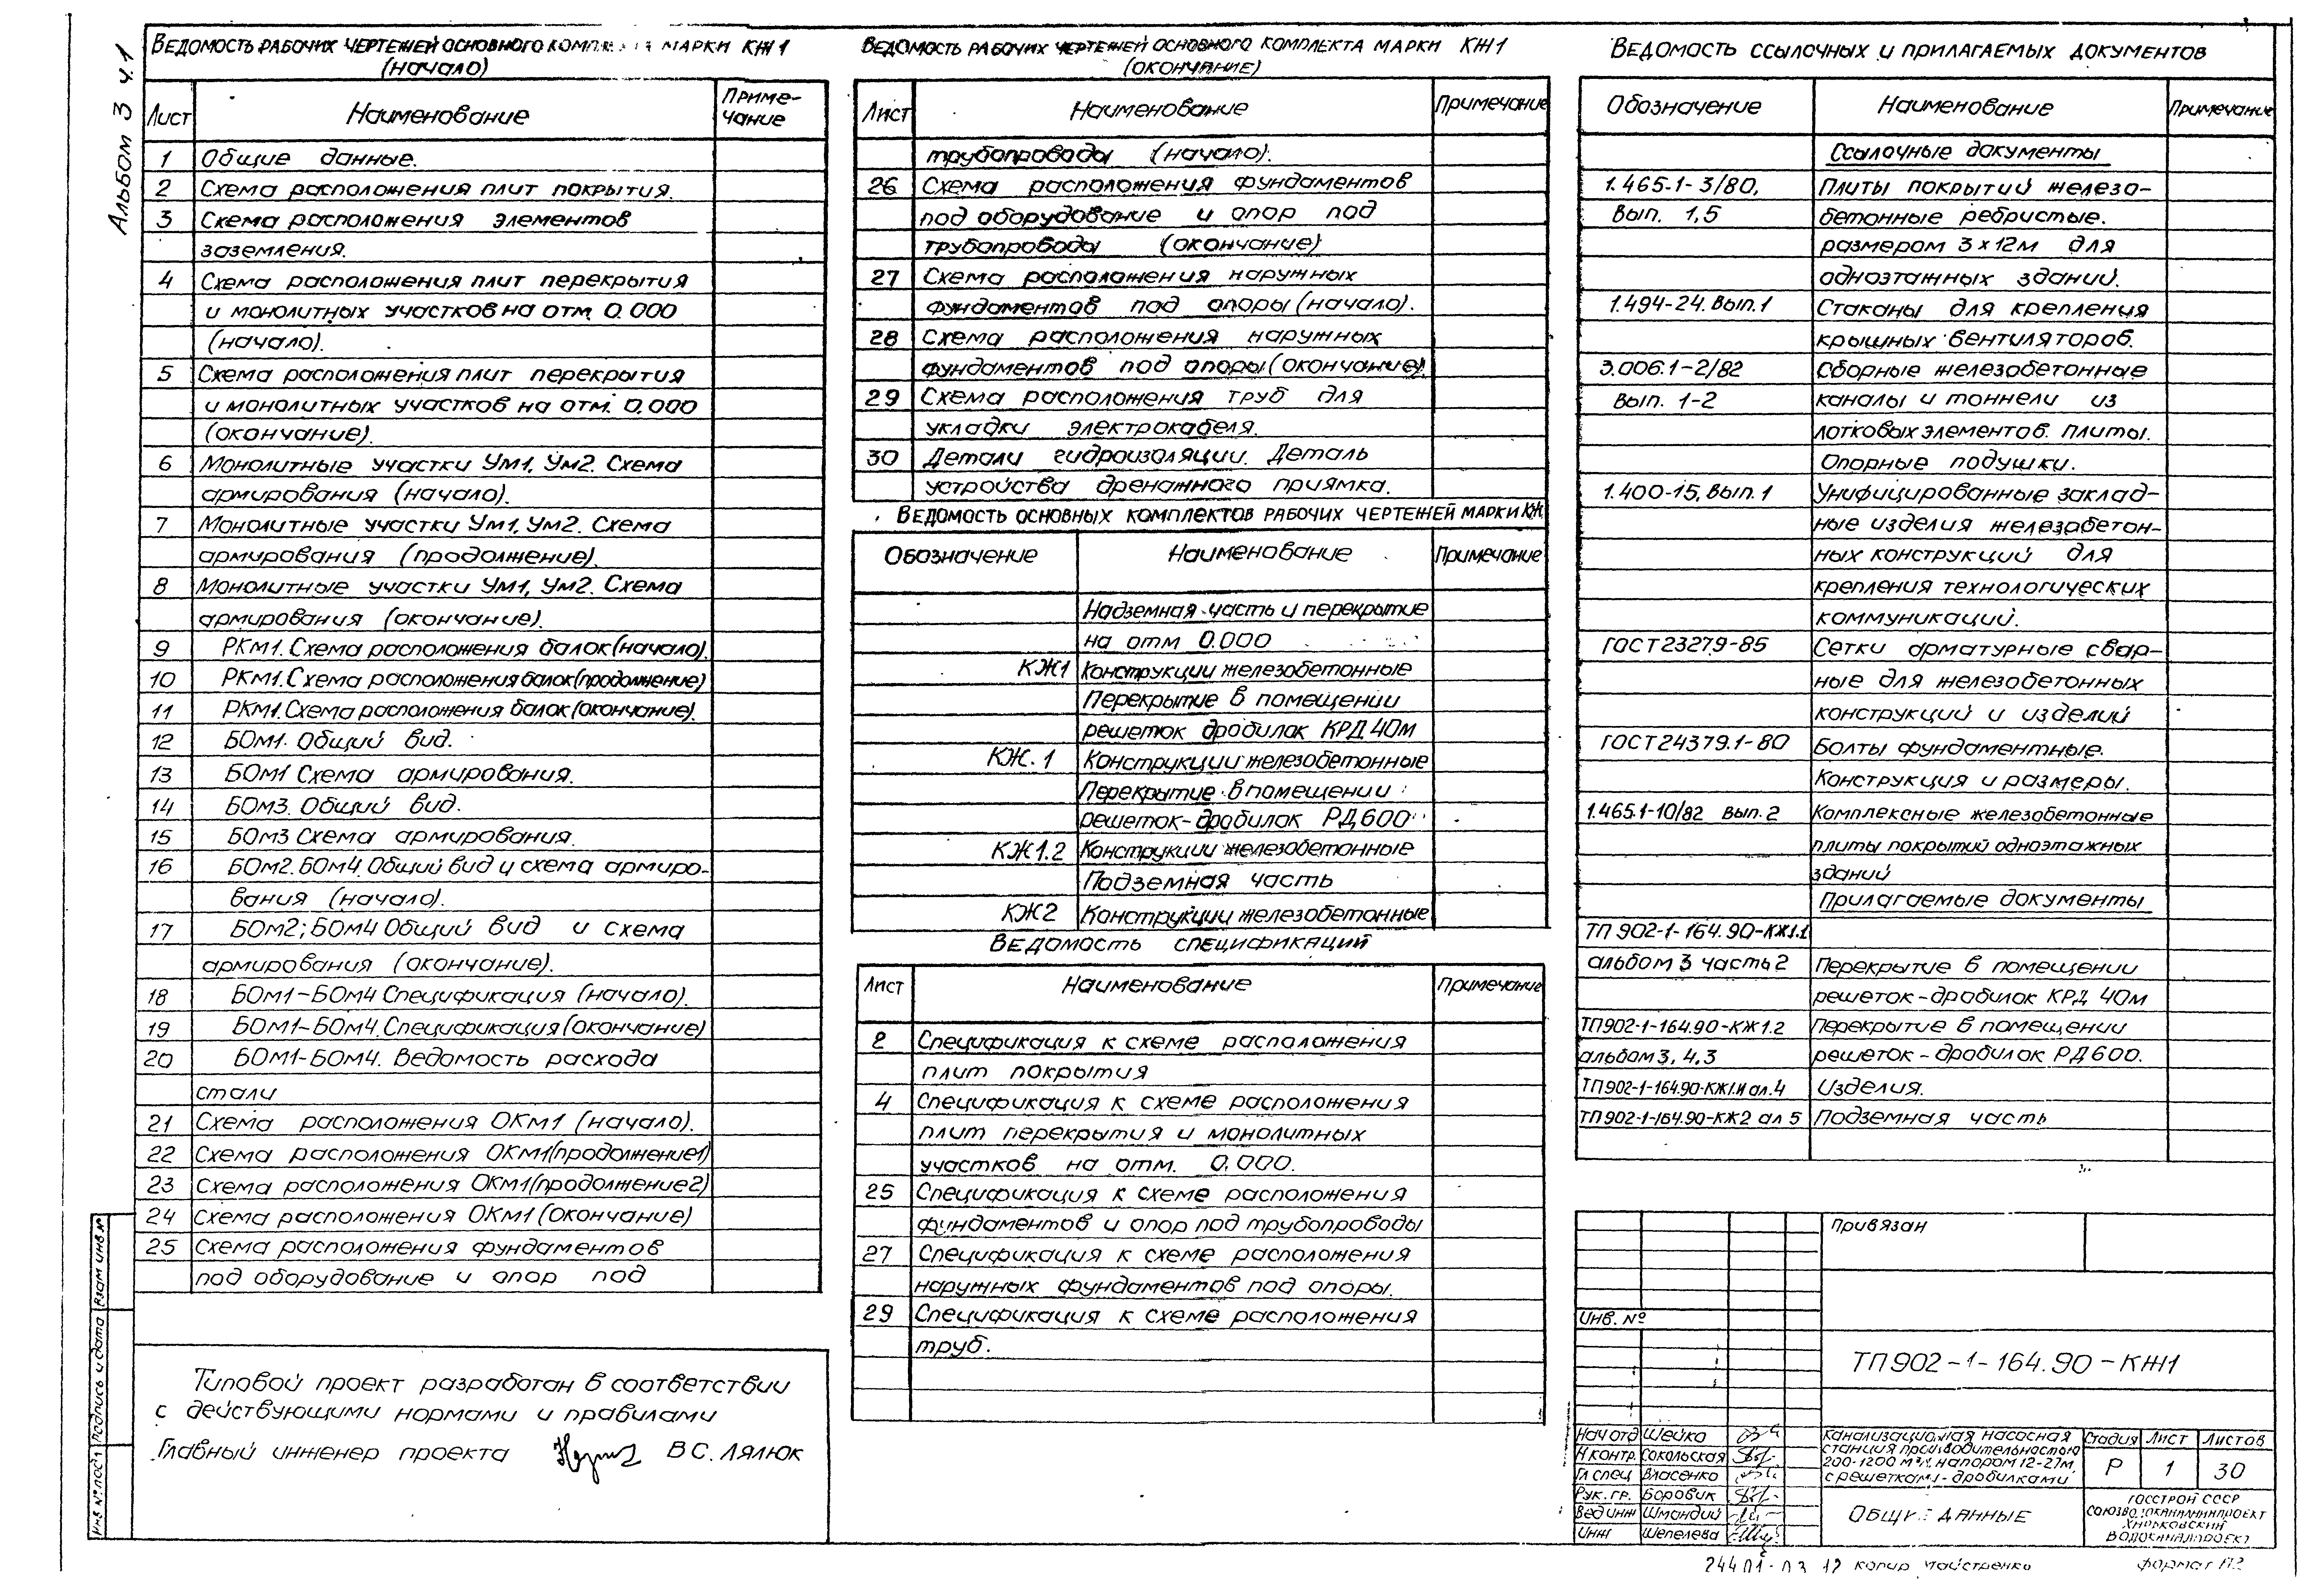 Альбом 3 ч.1
Ведомость рабочих чертежей основного марки КЖ1
(начало)
Лист Наименование Приме-
чание
1 Общие данные.
2 Схема расположения плит покрытия.
3 Схема расположения элементов
заземления.
4 Схема расположения плит перекрытия
и монолитных участков на отм. 0.000
(начало).
5 Схема расположения плит перекрытия
и монолитных участков на отм. 0.000
(окончание).
6 Монолитные участки Ум1, Ум2. Схема
армирования (начало).
7 Монолитные участки Ум1, Ум2. Схема
армирования (продолжение).
8 Монолитные участки Ум1, Ум2. Схема
армирования (окончание).
9 РКм1. Схема расположения балок (начало).
10 РКм1. Схема расположения балок (продолжение)
11 РКм1. Схема расположения балок (окончание).
12 БОм1. Общий вид.
13 БОм1 Схема армирования.
14 БОм3. Общий вид.
15 БОм3 Схема армирования.
16 БОм2. БОм4. Общий вид и схема армиро-
вания (начало).
17 БОм2; БОм4 Общий вид и схема
армирования (окончание).
18 БОм1-БОм4 Спецификация (начало).
19 БОм1-БОм4. Спецификация (окончание)
20 БОм1-БОм4. Ведомость расхода
стали
21 Схема расположения ОКм1 (начало).
22 Схема расположения ОКм1 (продолжение1)
23 Схема расположения ОКм1 (продолжение2)
24 Схема расположения ОКм1 (окончание)
25 Схема расположения фундаментов
под оборудование и опор под
Типовой проект разработан в соответствии
с действующими нормами и правилами
Главный инженер проекта В С. Лялюк
Взам инв.№
Подпись и дата
Инв № подл
Ведомость рабочих чертежей основного комплекта марки КЖ1
(окончание)
Лист Наименование Примечание
трубопроводы (начало).
26 Схема расположения фундаментов
под оборудование и опор под
трубопроводы (окончание)
27 Схема расположения наружных
фундаментов под опоры (начало).
28 Схема расположения наружных
фундаментов под опоры (окончание).
29 Схема расположения труб для
укладки электрокабеля.
30 Детали гидроизоляции. Деталь
устройства дренажного приямка.
Ведомость основных комплектов рабочих чертежей марки КЖ
Обозначение Наименование Примечание
Надземная часть и перекрытие
на отм 0.000
КЖ1 Конструкции железобетонные
Перекрытие в помещении
решеток дробилок КРД 40м
КЖ.1 Конструкции железобетонные
Перекрытие в помещении
решеток-дробилок РД600
КЖ1.2 Конструкции железобетонные
Подземная часть
КЖ2 Конструкции железобетонные
Ведомость спецификаций
Лист Наименование Примечание
2 Спецификация к схеме расположения
плит покрытия
4 Спецификация к схеме расположения
плит перекрытия и монолитных
участков на отм. 0.000.
25 Спецификация к схеме расположения
фундаментов и опор под трубопроводы
27 Спецификация к схеме расположения
наружных фундаментов под опоры.
29 Спецификация к схеме расположения
труб.
Ведомость ссылочных и прилагаемых документов
Обозначение Наименование Примечание
Ссылочные документы
1.465.1-3/80, Плиты покрытий железо-
Вып. 1,5 бетонные ребристые.
размером 3х12м для
одноэтажных зданий.
1.494-24. Вып.1 Стаканы для крепления
крышных вентиляторов.
3.006.1-2/82 Сборные железобетонные
Вып. 1-2 каналы и тоннели из
лотковых элементов. Плиты.
Опорные подушки.
1.400-15, Вып.1 Унифицированные заклад-
ные изделия железобетон-
ных конструкций для
крепления технологических
коммуникаций.
ГОСТ 23279-85 Сетки арматурные свар-
ные для железобетонных
конструкций и изделий
ГОСТ 24379.1-80 Болты фундаментные.
Конструкция и размеры.
1.465.1-10/82 Вып.2 Комплексные железобетонные
плиты покрытий одноэтажных
зданий
Прилагаемые документы
ТП 902-1-164.90-КЖ1.1
альбом 3 часть 2 Перекрытие в помещении
решеток-дробилок КРД 40м
ТП902-1-164.90-КЖ1.2 Перекрытие в помещении
альбом 3, ч,3 решеток-дробилок РД600.
ТП902-1-164.90-КЖ1.И ал.4 Изделия.
ТП902-1-164.90-КЖ2 ал 5 Подземная часть
Привязан
Инв. №
ТП902-1-164.90-КЖ1
Нач отд Шейко
Н контр. Сокольская
Гл спец Власенко
Рук. гр. Боровик
Вед инж Шмандий
Инж Шепелева
Канализационная насосная
станция производительностью
200-1200 м³/ч, напором 12-27м,
с решетками-дробилками
Стадия Лист Листов
Р 1 30
Общие данные
Госстрой СССР
Союзводоканалниипроект
Харьковский
Водоканалпроект
24401-03 12 копир Майстренко формат А2